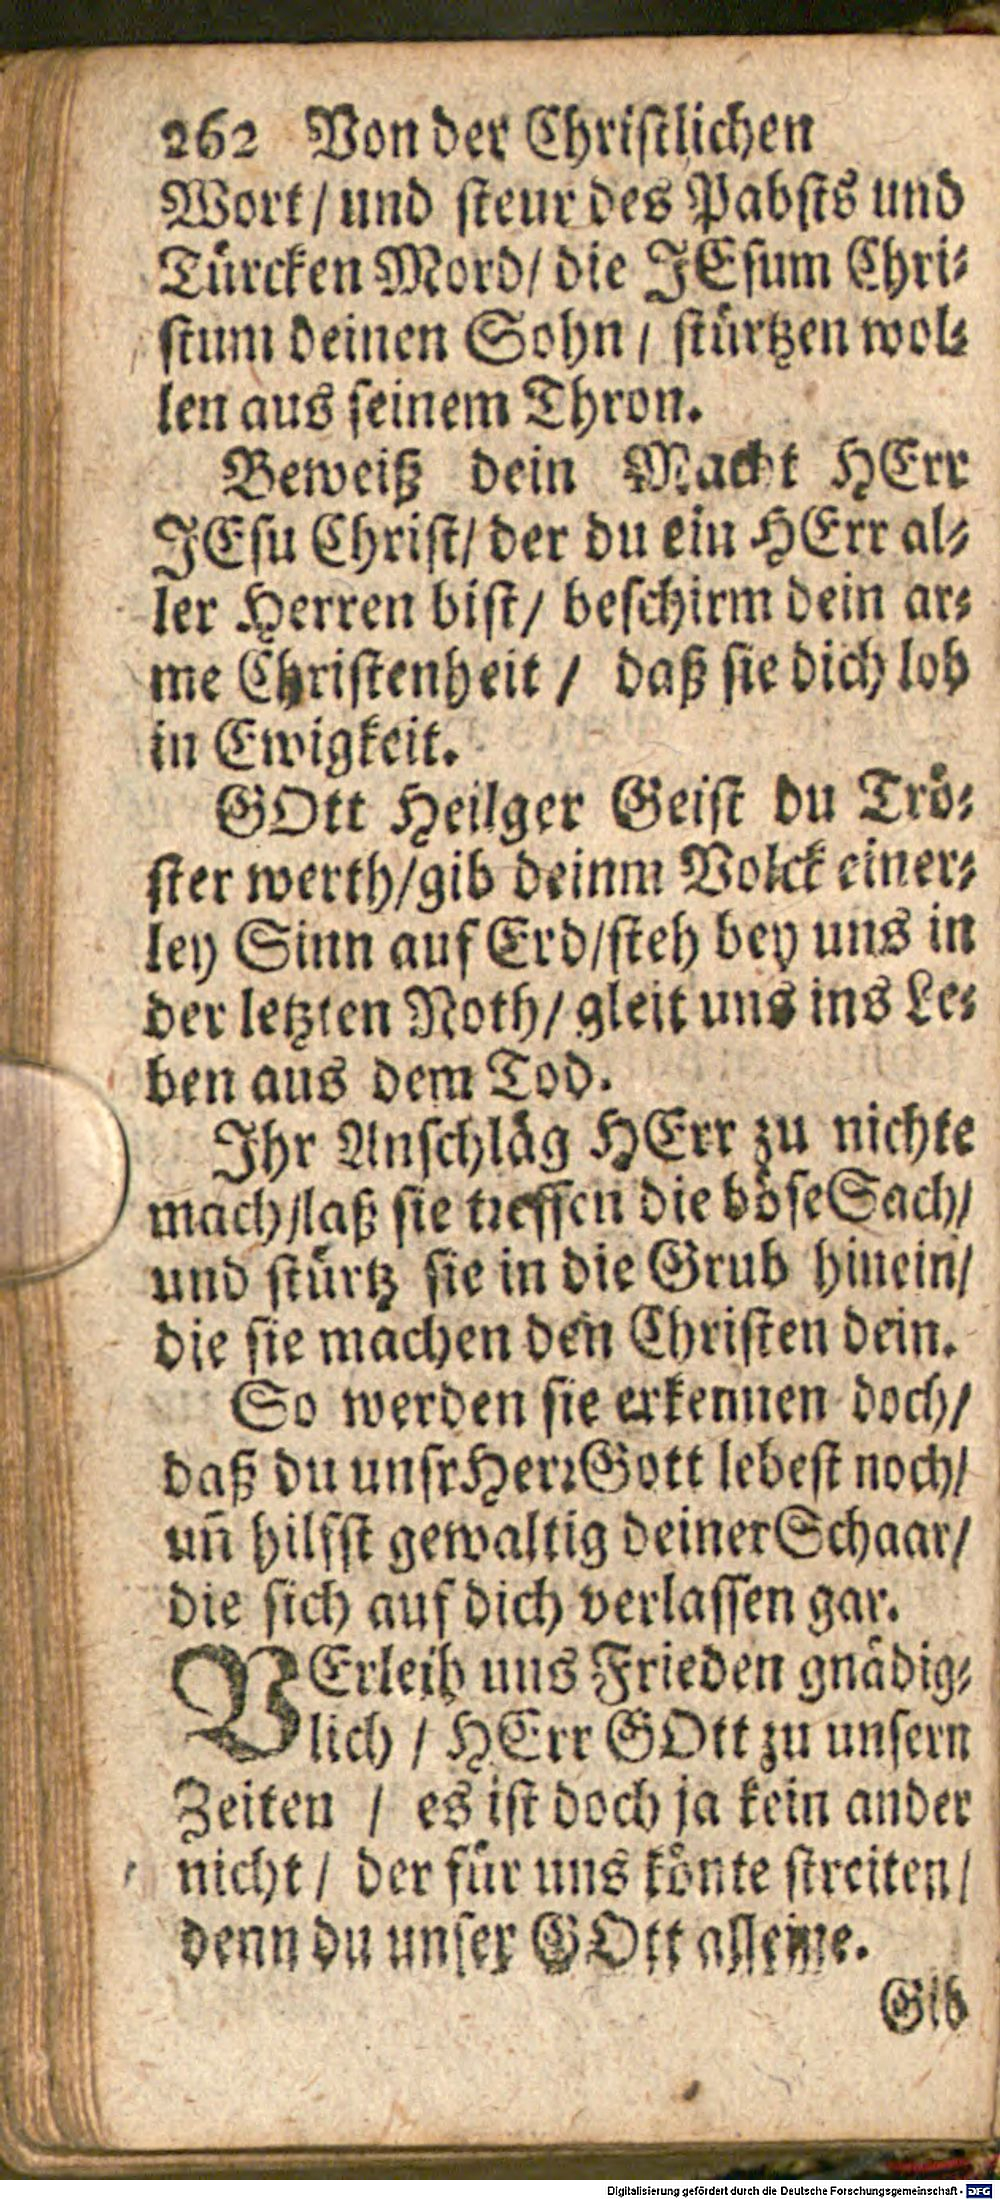 262 Von der Chriſtlichen
Wort/ und ſteur des Pabſts und
Türcken Mord/ die JEſum Chri-
ſtum deinen Sohn / ſtürtzen wol-
len aus ſeinem Thron.
Beweiß dein Macht HErr
JEſu Chriſt/ der du ein HErr al-
ler Herren biſt/ beſchirm dein ar-
me Chriſtenheit / daß ſie dich lob
in Ewigkeit.
GOtt Heilger Geiſt du Trö-
ſter werth/gib deinm Volck einer-
ley Sinn auf Erd/ſteh bey uns in
der letzten Noth/ gleit uns ins Le-
ben aus dem Tod.
Ihr Anſchläg HErr zu nichte
mach/laß ſie treffen die böſe Sach/
und ſtürtz ſie in die Grub hinein/
die ſie machen den Chriſten dein.
So werden ſie erkennen doch/
daß du unſr Herr Gott lebeſt noch/
un̄ hilfſt gewaltig deiner Schaar/
die ſich auf dich verlaſſen gar.
VErleih uns Frieden gnädig-
lich / HErr GOtt zu unſern
Zeiten / es iſt doch ja kein ander
nicht/ der für uns könte ſtreiten/
denn du unſer GOtt alleine.
Gib
Digitalisierung gefördert durch die Deutsche Forschungsgemeinschaft - DFG